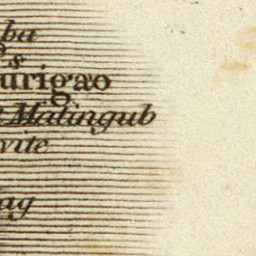 ba
s
urigao
Malingub
vite
ag